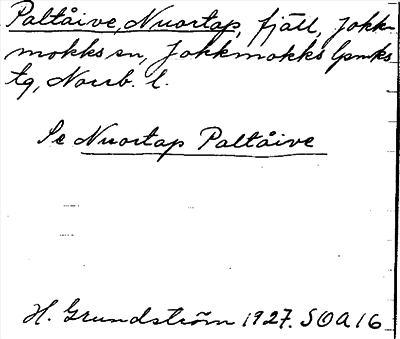 Paltåive, Nuortap, fjäll, Jokk-
mokks sn, Jokkmokks lpmks
tg, Norrb. l.
Se Nuortap Paltåive
H. Grundström 1927. SOA 16